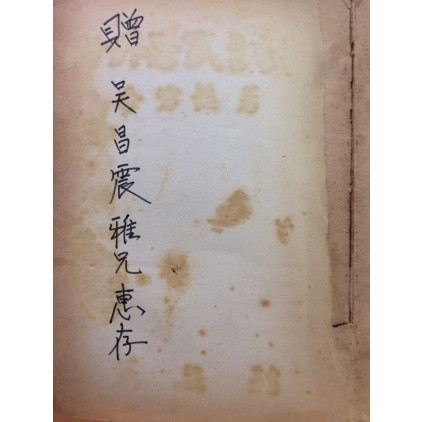 赠吴昌震雅兄惠存